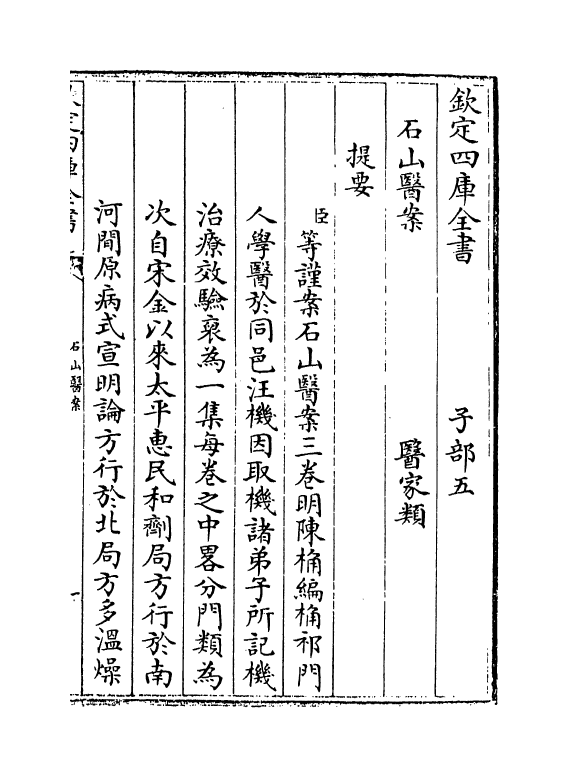 欽定四庫全書 子部五
石山醫案 醫家類
提要
臣等謹案石山醫案三卷明陳桷編桷祁門
人學醫於同邑汪機因取機諸弟子所記機
治療效驗裒為一集每卷之中畧分門類為
次自宋金以來太平惠民和劑局方行於南
河間原病式宣明論方行於北局方多溫燥
欽定四庫全書
石山醫案
一